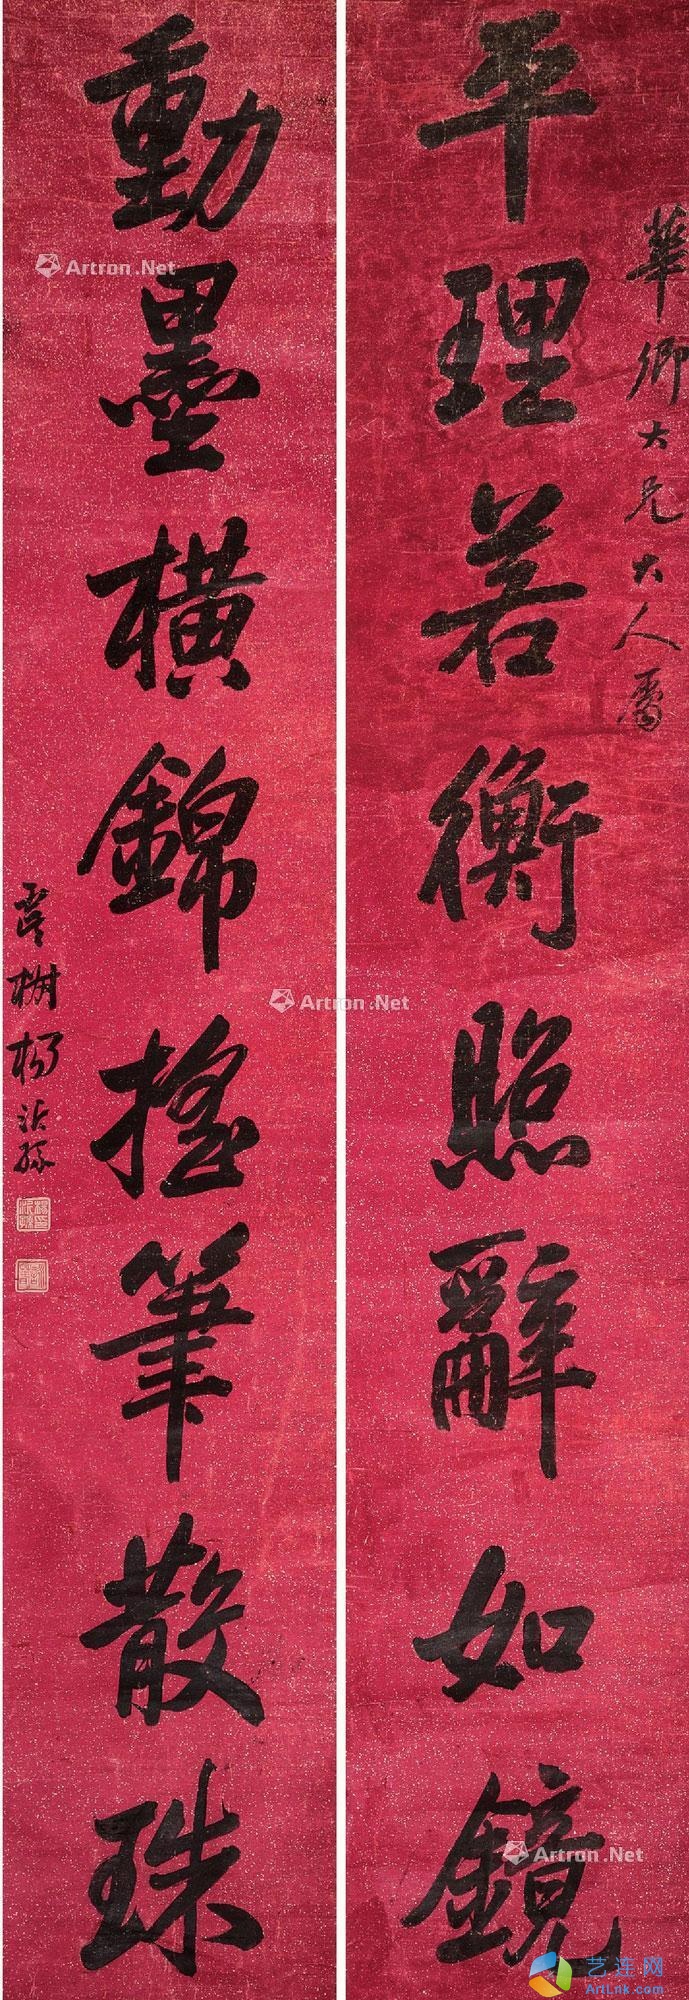 華卿大兄大人屬
平理若衡照辭如鏡
動墨橫錦搖筆散珠
虞榭楊沂孫
Artron.Net
Artron.Net
Artron.Net
艺连网
ArtLnk.com